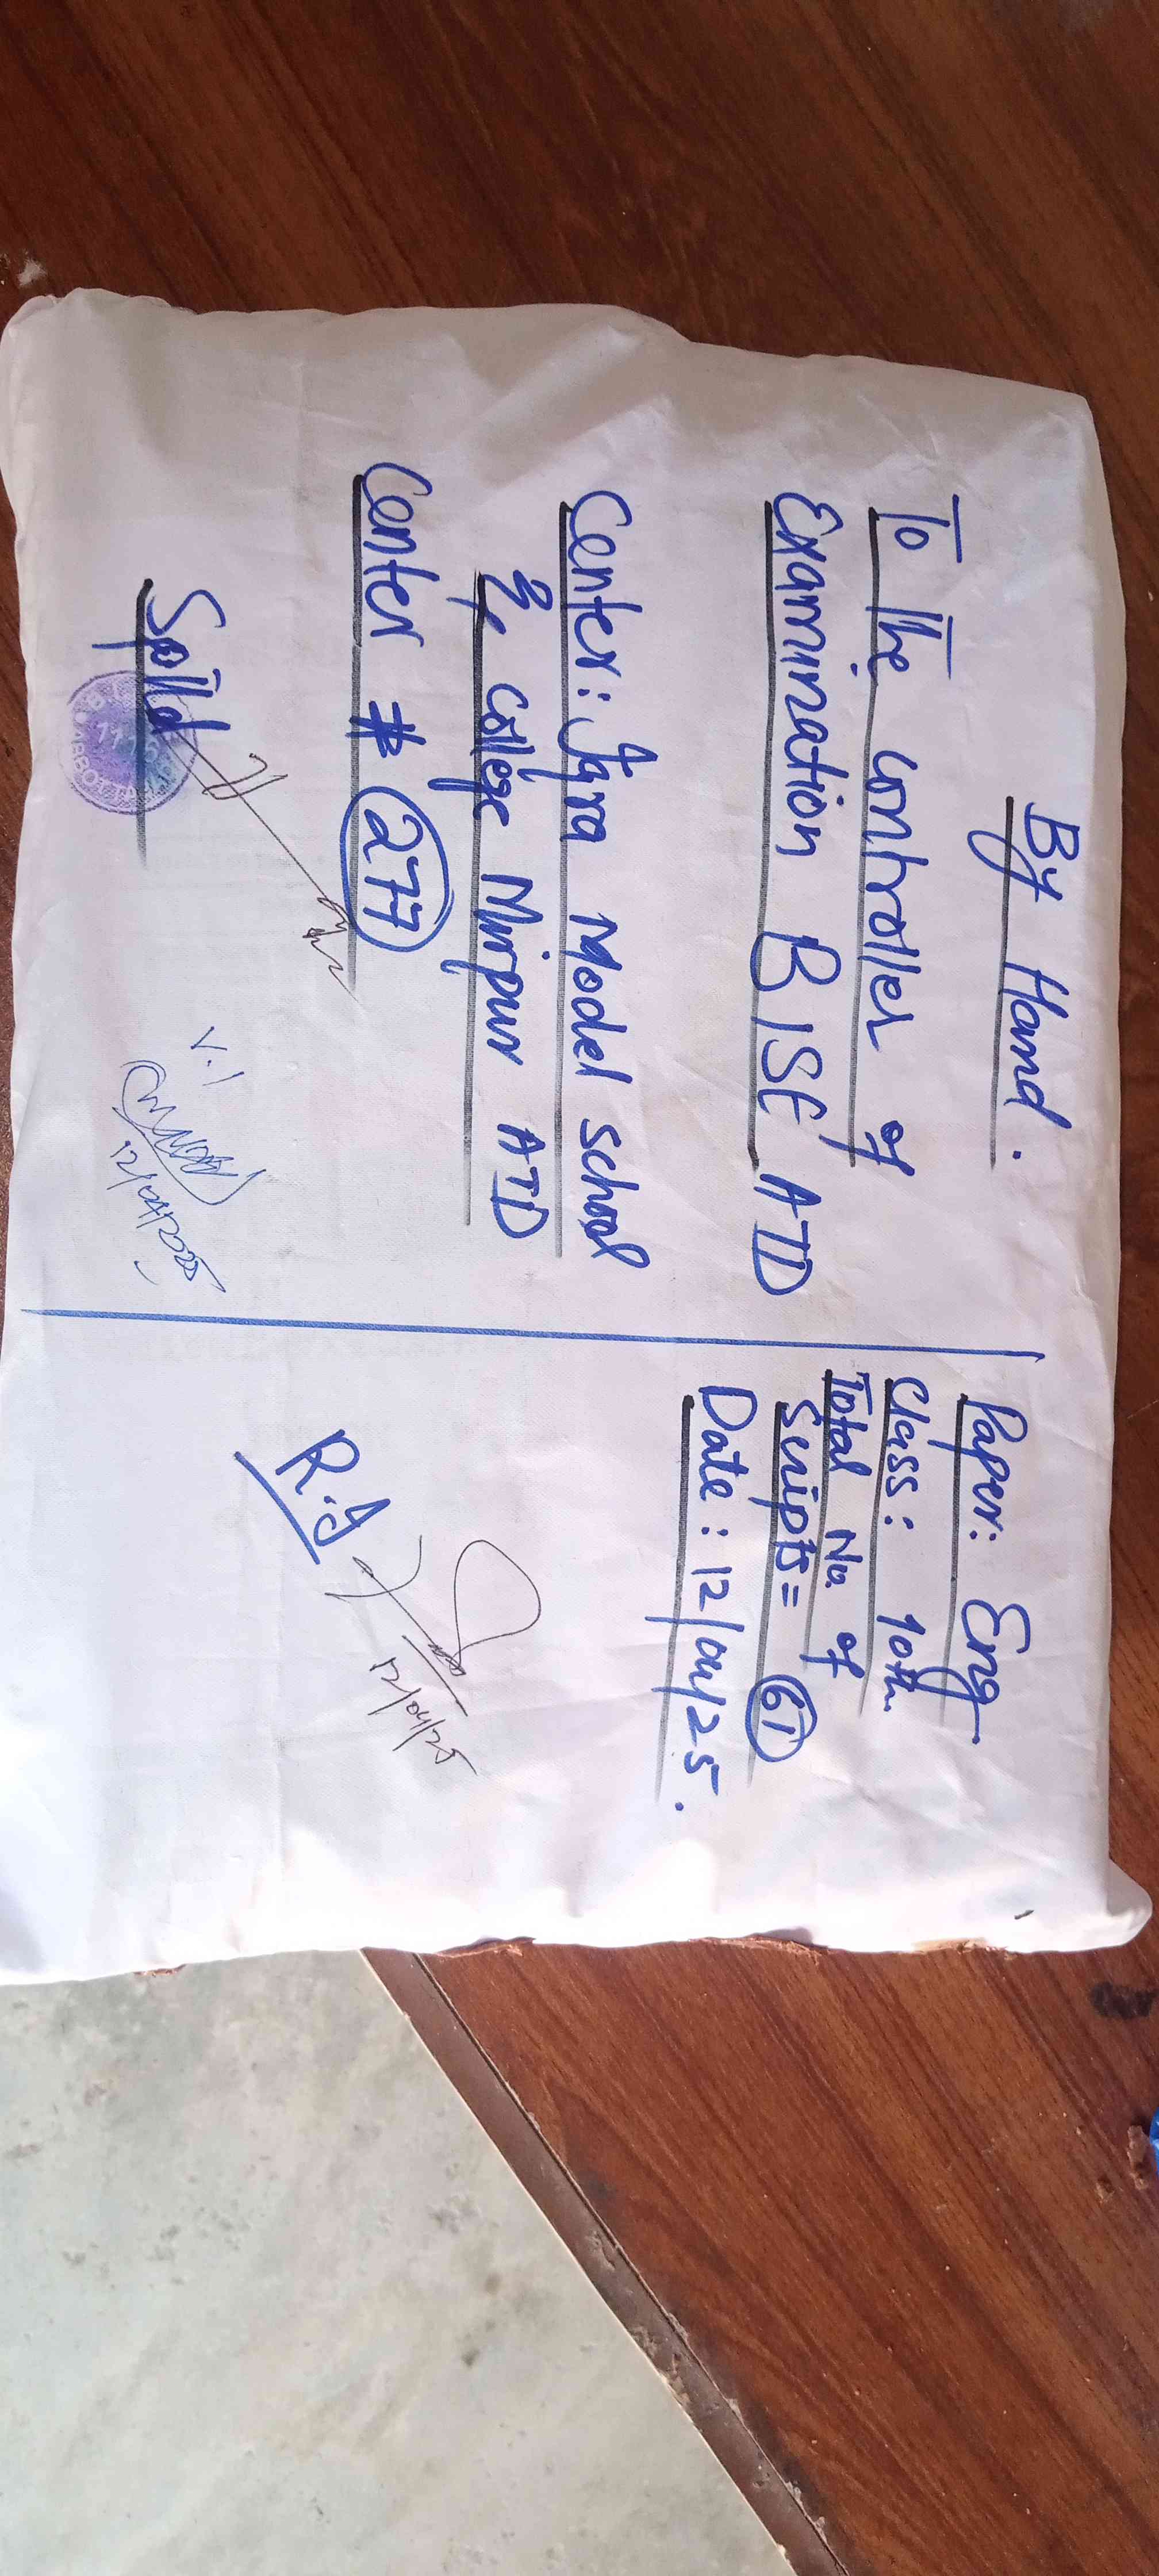 By Hand.
To The Controller of
Examination BISE ATD
Center: Iqra Model School
& College Mirpur ATD
Center # 277
Paper: Eng
Class: 10th
Total No. of
Scripts = 61
Date: 12/04/25.
R.I